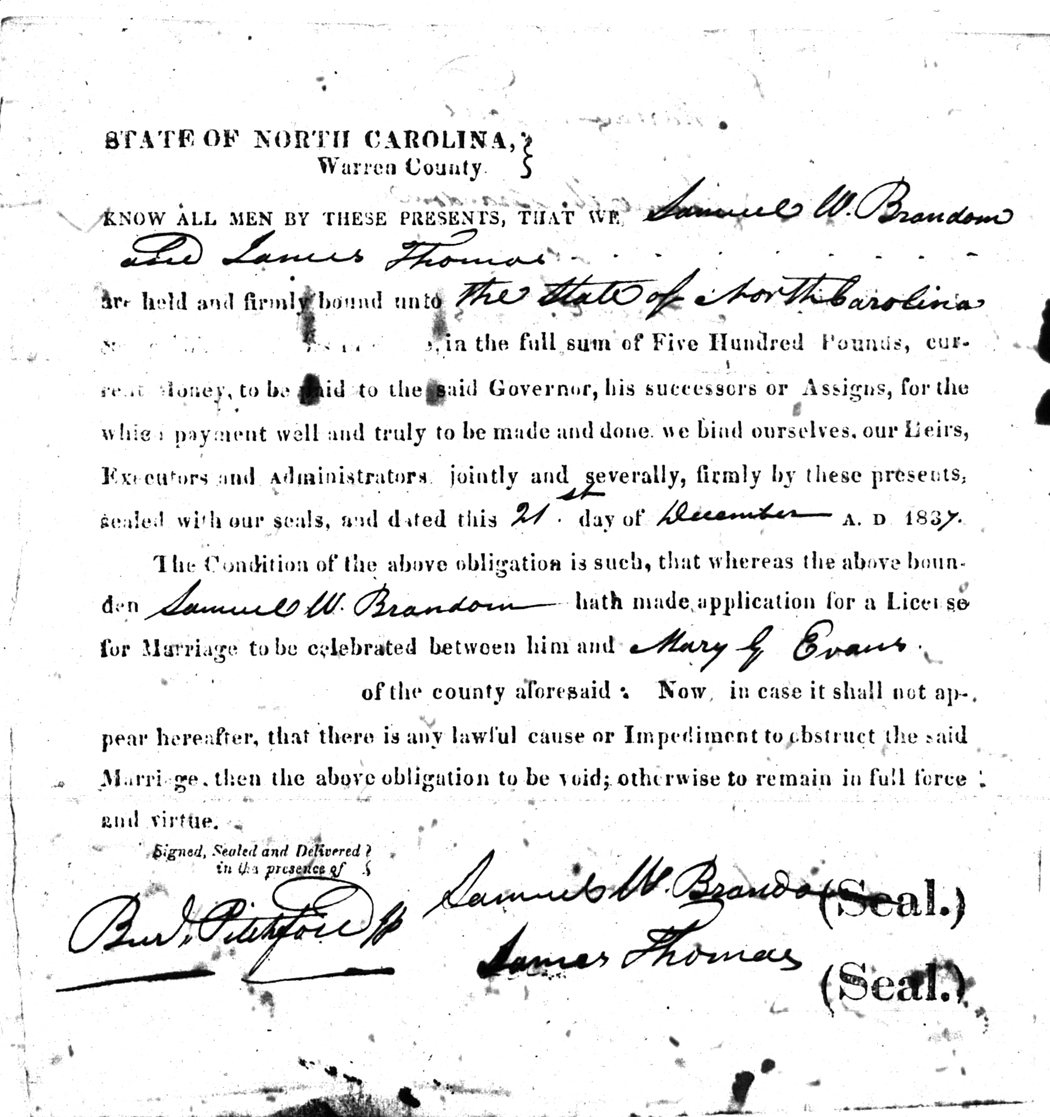 STATE OF NORTH CAROLINA,
Warren County.
KNOW ALL MEN BY THESE PRESENTS, THAT WE Samuel W. Brandom
and James Thomas
are held and firmly bound unto The State of North Carolina
in the full sum of Five Hundred Pounds, cur-
rent Money, to be paid to the said Governor, his successors or Assigns, for the
which payment well and truly to be made and done. we bind ourselves, our Heirs,
Executors and Administrators, jointly and severally, firmly by these presents,
sealed with our seals, and dated this 21st day of December A. D. 1837.
The Condition of the above obligation is such, that whereas the above boun-
den Samuel W. Brandom hath made application for a License
for Marriage to be celebrated between him and Mary G Evans.
of the county aforesaid: Now, in case it shall not ap-
pear hereafter, that there is any lawful cause or Impediment to obstruct the said
Marriage, then the above obligation to be void; otherwise to remain in full force
and virtue.
Signed, Sealed and Delivered
in the presence of
Samuel W. Brandom (Seal.)
Pitchford
James Thomas (Seal.)